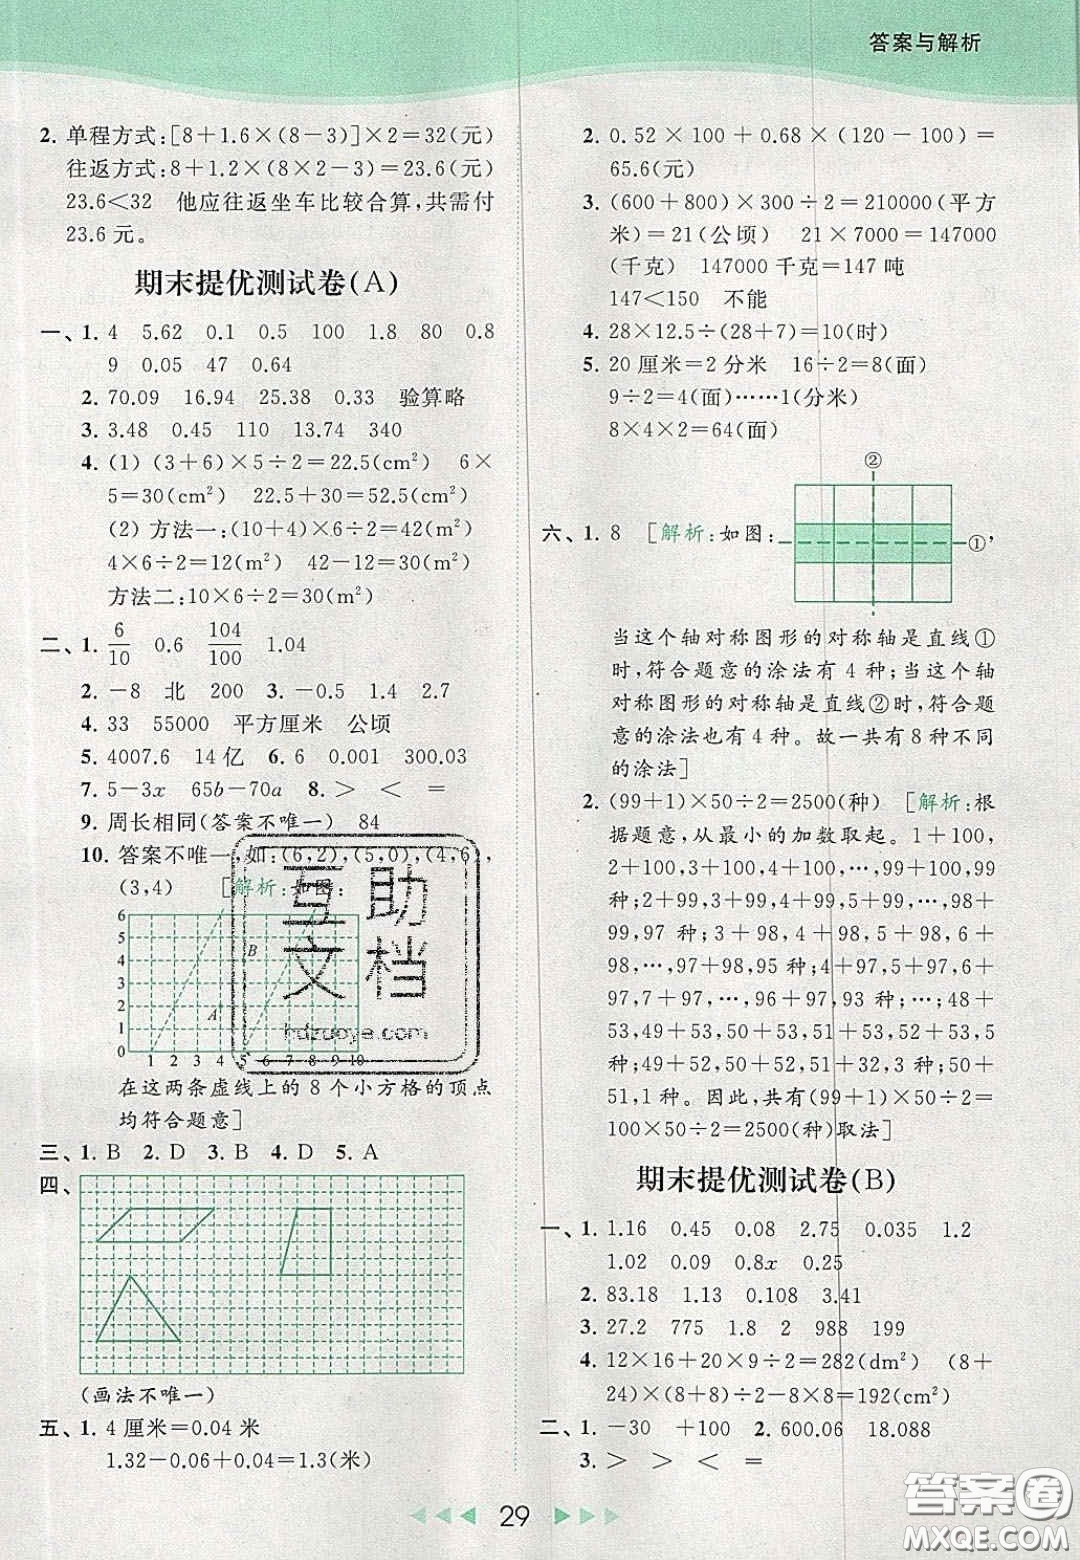 答案与解析
2. 单程方式:[8+1.6×(8-3)]×2=32(元)
往返方式:8+1.2×(8×2-3)=23.6(元)
23.6<32 他应往返坐车比较合算,共需付
23.6元。
期末提优测试卷(A)
一、1. 4 5.62 0.1 0.5 100 1.8 80 0.8
9 0.05 47 0.64
2. 70.09 16.94 25.38 0.33 验算略
3. 3.48 0.45 110 13.74 340
4. (1) (3+6)×5÷2=22.5(cm²) 6×
5=30(cm²) 22.5+30=52.5(cm²)
(2) 方法一:(10+4)×6÷2=42(m²)
4×6÷2=12(m²) 42-12=30(m²)
方法二:10×6÷2=30(m²)
二、1. 6/10 0.6 104/100 1.04
2. -8 北 200 3. -0.5 1.4 2.7
4. 33 55000 平方厘米 公顷
5. 4007.6 14亿 6. 6 0.001 300.03
7. 5-3x 65b-70a 8. > < =
9. 周长相同(答案不唯一) 84
10. 答案不唯一,如:(6,2),(5,0),(4,6),
(3,4) [解析:如图:
6
5
4
3
2
1
0
B
A
1 2 3 4 5 6 7 8 9 10
在这两条虚线上的8个小方格的顶点
均符合题意]
三、1. B 2. D 3. B 4. D 5. A
四、
(画法不唯一)
五、1. 4厘米=0.04米
1.32-0.06+0.04=1.3(米)
2. 0.52×100+0.68×(120-100)=
65.6(元)
3. (600+800)×300÷2=210000(平方
米)=21(公顷) 21×7000=147000
(千克) 147000千克=147吨
147<150 不能
4. 28×12.5÷(28+7)=10(时)
5. 20厘米=2分米 16÷2=8(面)
9÷2=4(面)……1(分米)
8×4×2=64(面)
②
六、1. 8 [解析:如图: ①,
当这个轴对称图形的对称轴是直线①
时,符合题意的涂法有4种;当这个轴
对称图形的对称轴是直线②时,符合题
意的涂法也有4种。故一共有8种不同
的涂法]
2. (99+1)×50÷2=2500(种) [解析:根
据题意,从最小的加数取起。1+100,
2+100,3+100,4+100,…,99+100,99
种;2+99,3+99,4+99,5+99,…,98+
99,97种;3+98,4+98,5+98,6+
98,…,97+98,95种;4+97,5+97,6+
97,7+97,…,96+97,93种;…;48+
53,49+53,50+53,51+53,52+53,5
种;49+52,50+52,51+52,3种;50+
51,1种。因此,共有(99+1)×50÷2=
100×50÷2=2500(种)取法]
期末提优测试卷(B)
一、1. 1.16 0.45 0.08 2.75 0.035 1.2
1.02 0.09 0.8x 0.25
2. 83.18 1.13 0.108 3.41
3. 27.2 775 1.8 2 988 199
4. 12×16+20×9÷2=282(dm²) (8+
24)×(8+8)÷2-8×8=192(cm²)
二、1. -30 +100 2. 600.06 18.088
3. > > < =
29
互助
文档
hdzuoye.com
答案圈
MXQE.COM